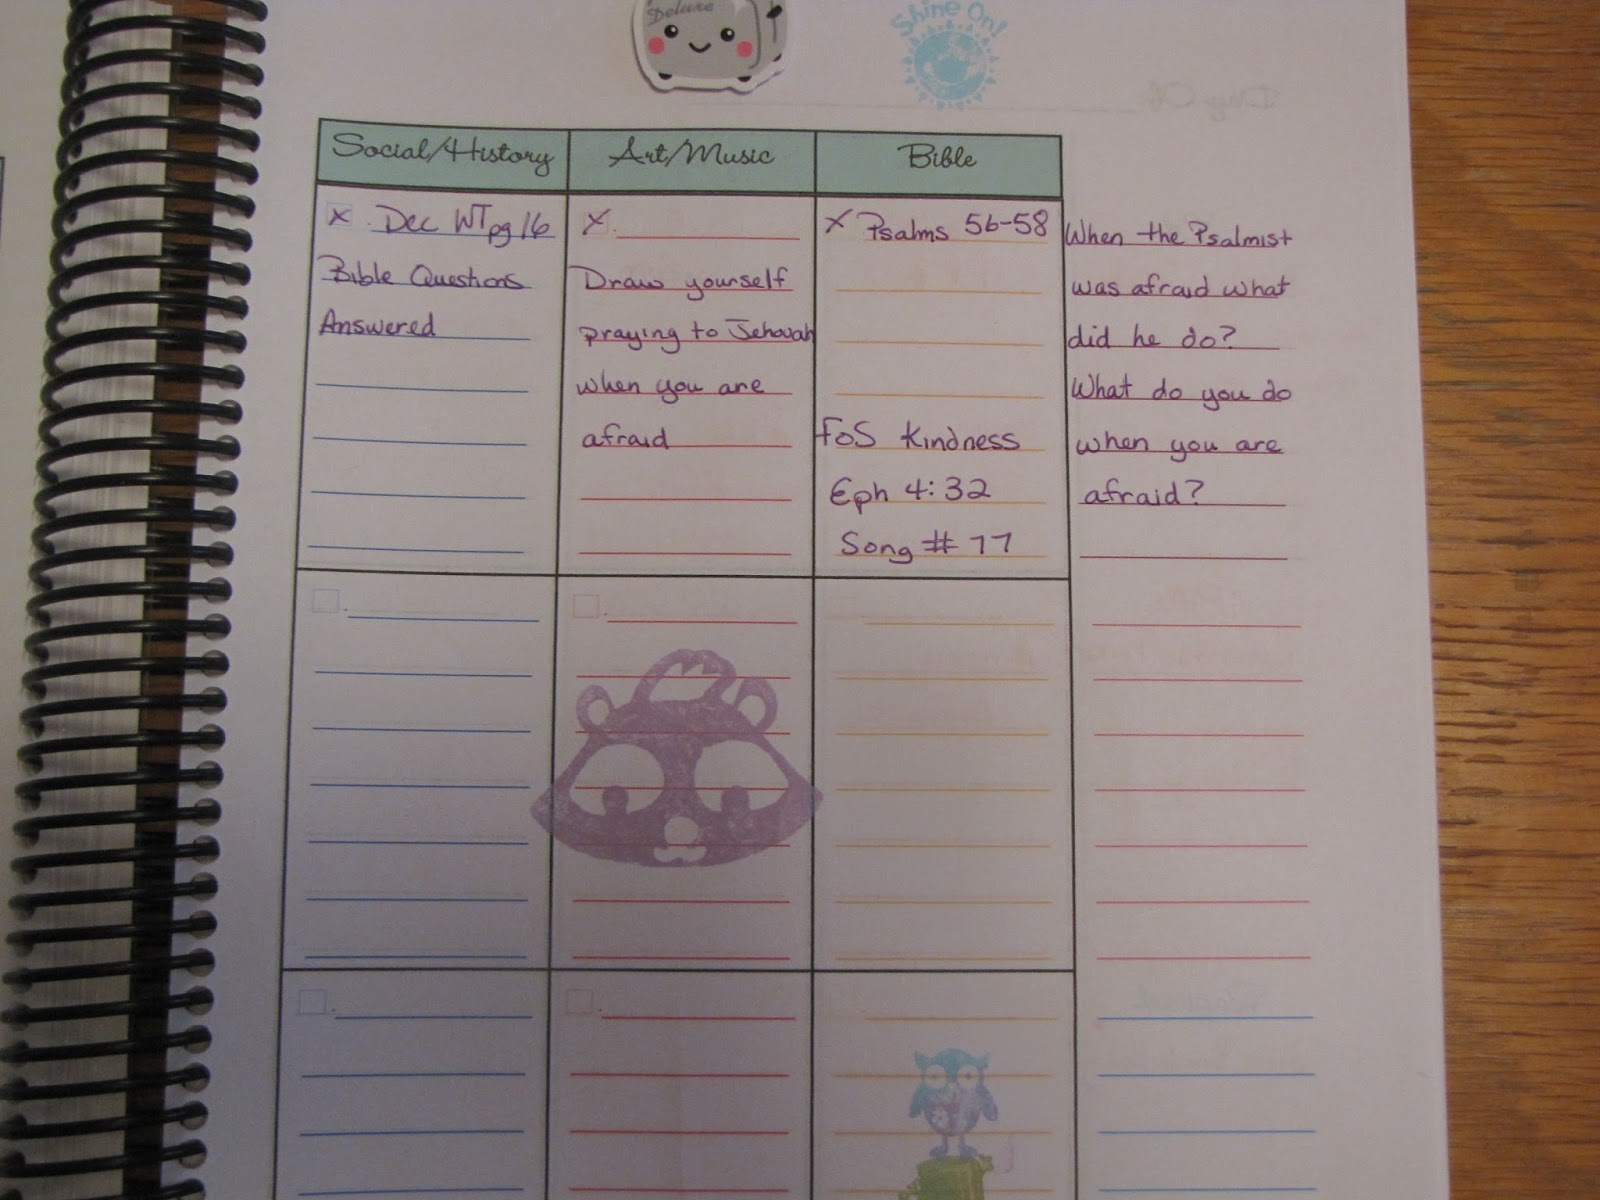 Deluxe
Shine On!
Social/History
Art/Music
Bible
X . Dec WT pg 16
Bible Questions
Answered
X .
Draw yourself
praying to Jehovah
when you are
afraid
X Psalms 56-58
FoS Kindness
Eph 4:32
Song # 77
When the Psalmist
was afraid what
did he do?
What do you do
when you are
afraid?